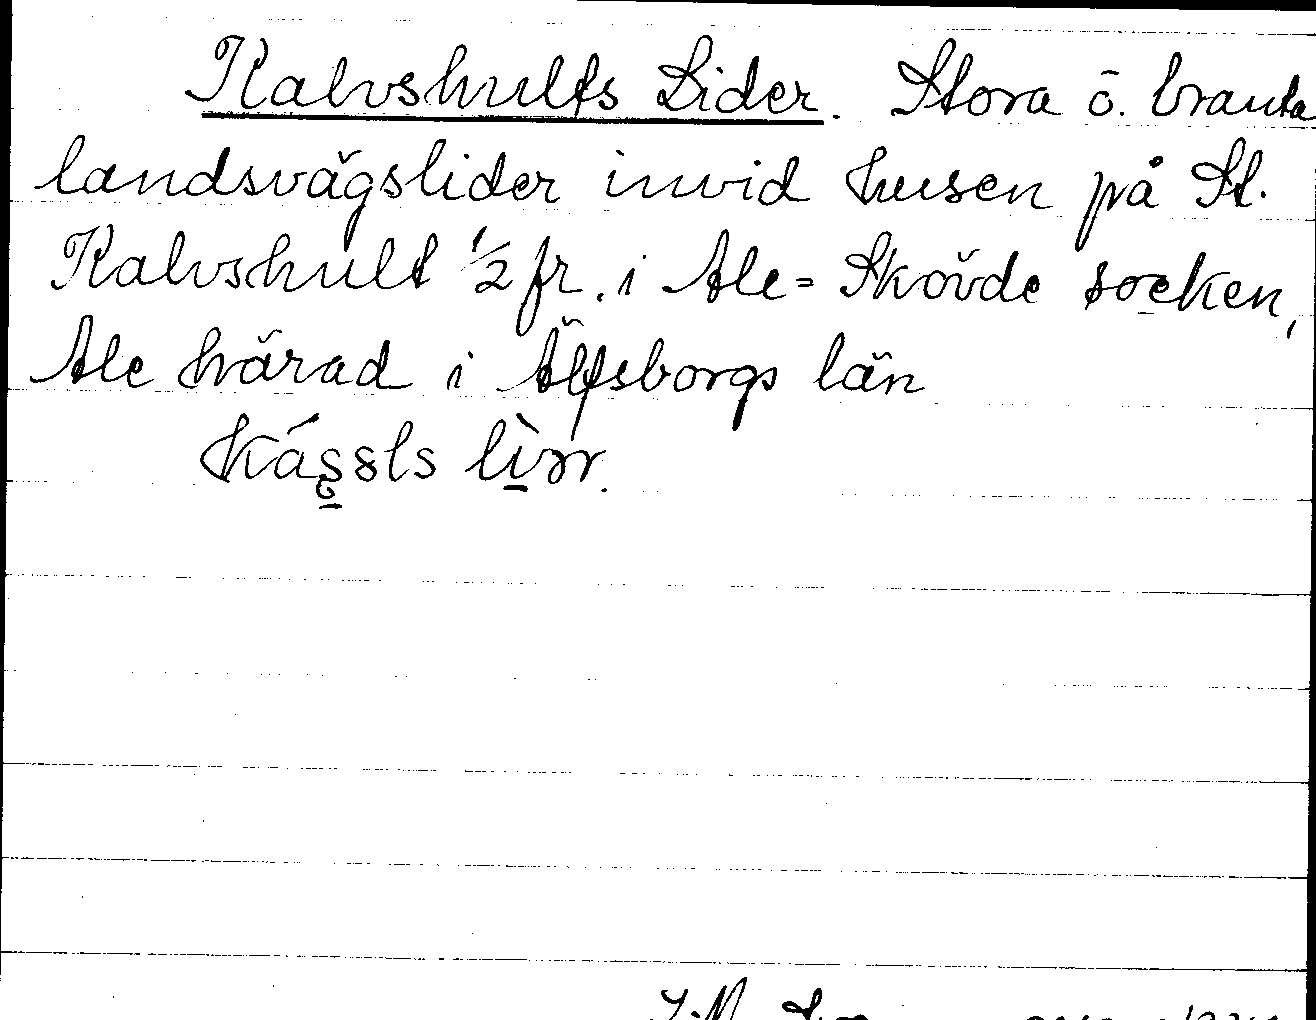 Kalvshults Lider. Stora ō. branta
landsvägslider invid husen på St.
Kalvshult ½ fr. i Ale=Skövde socken,
Ale härad i Älfsborgs län